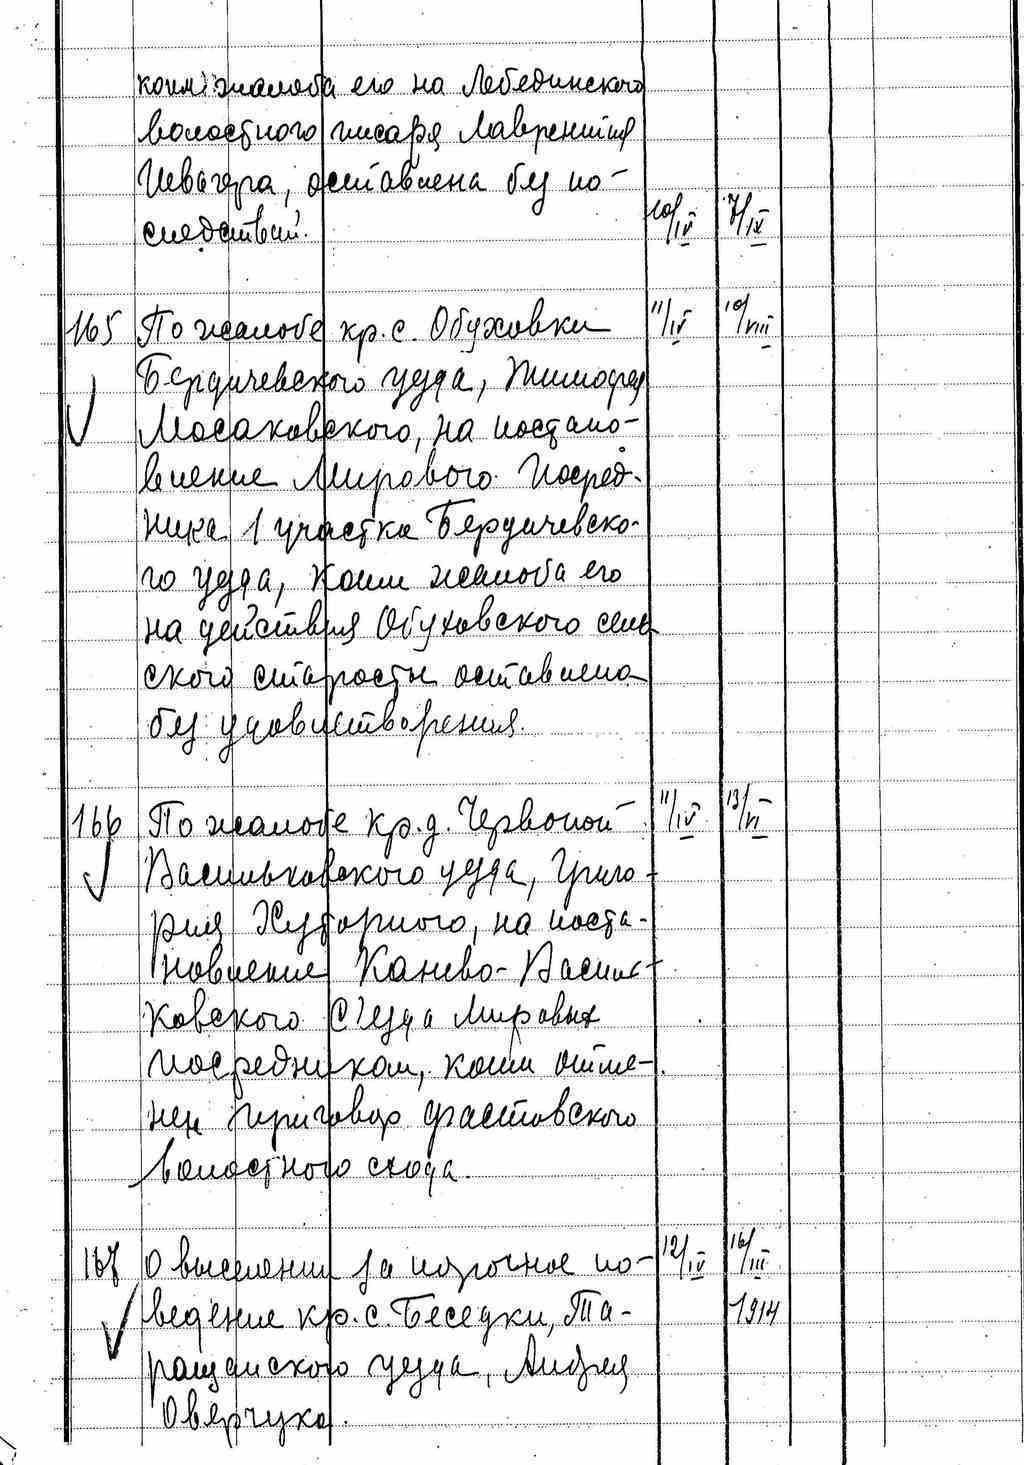 коим жалоба его на Лебединского
волостного писаря Лаврентия
оставлена без по-
следствий. 10/IV 7/IX
165 По жалобе кр. с. Обуховки 11/IV 10/VIII
Бердичевского уезда, Тимофея
Мосаковского, на постано-
вление Мирового Посред-
ника 1 участка Бердичевско-
го уезда, коим жалоба его
на действия Обуховского сель
ского старосты оставлена
без удовлетворения.
166 По жалобе кр. д. Червоной 11/IV 13/VI
Васильковского уезда, Григо-
рия Хуторного, на поста-
новление Канево-Василь-
ковского С'езда Мировых
посредников, коим отме-
нен приговор Фастовского
волостного схода.
167 О выселении за порочное по- 12/IV 16/III
ведение кр. с. Беседки, Та- 1914
ращанского уезда, Андрея
Оверчука.